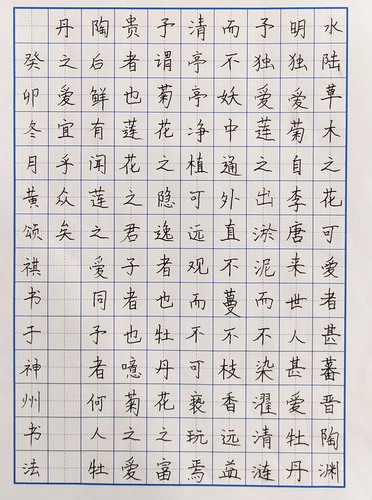 水陆草木之花可爱者甚蕃晋陶渊
明独爱菊自李唐来世人甚爱牡丹
予独爱莲之出淤泥而不染濯清涟
而不妖中通外直不蔓不枝香远益
清亭亭净植可远观而不可亵玩焉
予谓菊花之隐逸者也牡丹花之富
贵者也莲花之君子者也噫菊之爱
陶后鲜有闻莲之爱同予者何人牡
丹之爱宜乎众矣
癸卯冬月黄颂祺书于神州书法